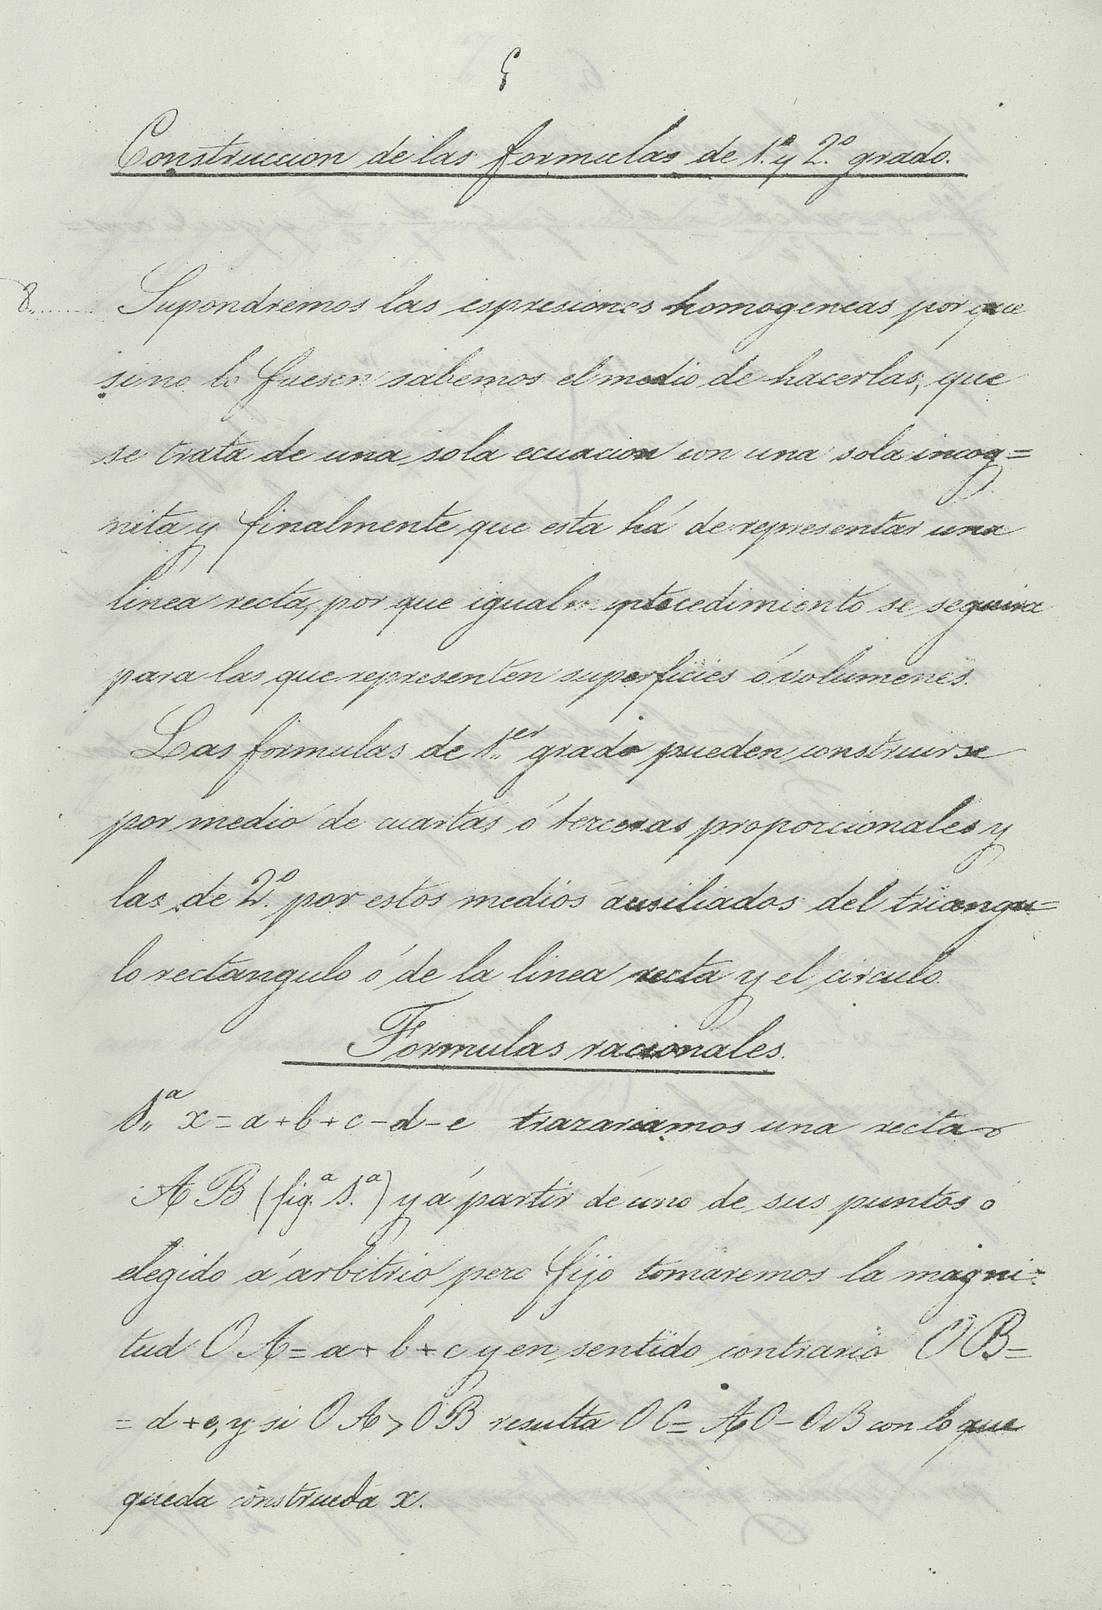 5
Construccion de las formulas de 1.º y 2.º grado.
8.,...... Supondremos las espresiones homogeneas por que
si no lo fuesen sabemos el medio de hacerlas, que
se trata de una sola ecuacion con una sola incog=
nita y finalmente que esta há de representar una
linea recta, por que igual procedimiento se seguira
para las que representen superficies ó volumenes.
Las formulas de 1.er grado pueden construirse
por medio de cuartas ó terceras proporcionales y
las de 2.º por estos medios ausiliados del triangu=
lo rectangulo ó de la linea recta y el circulo.
Formulas racionales.
1.ª x = a + b + c - d - e trazariamos una recta
A B (fig.ª 1.ª) y á partir de uno de sus puntos o
elegido á arbitrio pero fijo tomaremos la magni=
tud O A = a + b + c y en sentido contrario O B =
= d + e, y si O A > O B resulta O C = A O - O B con lo que
queda construeda x.